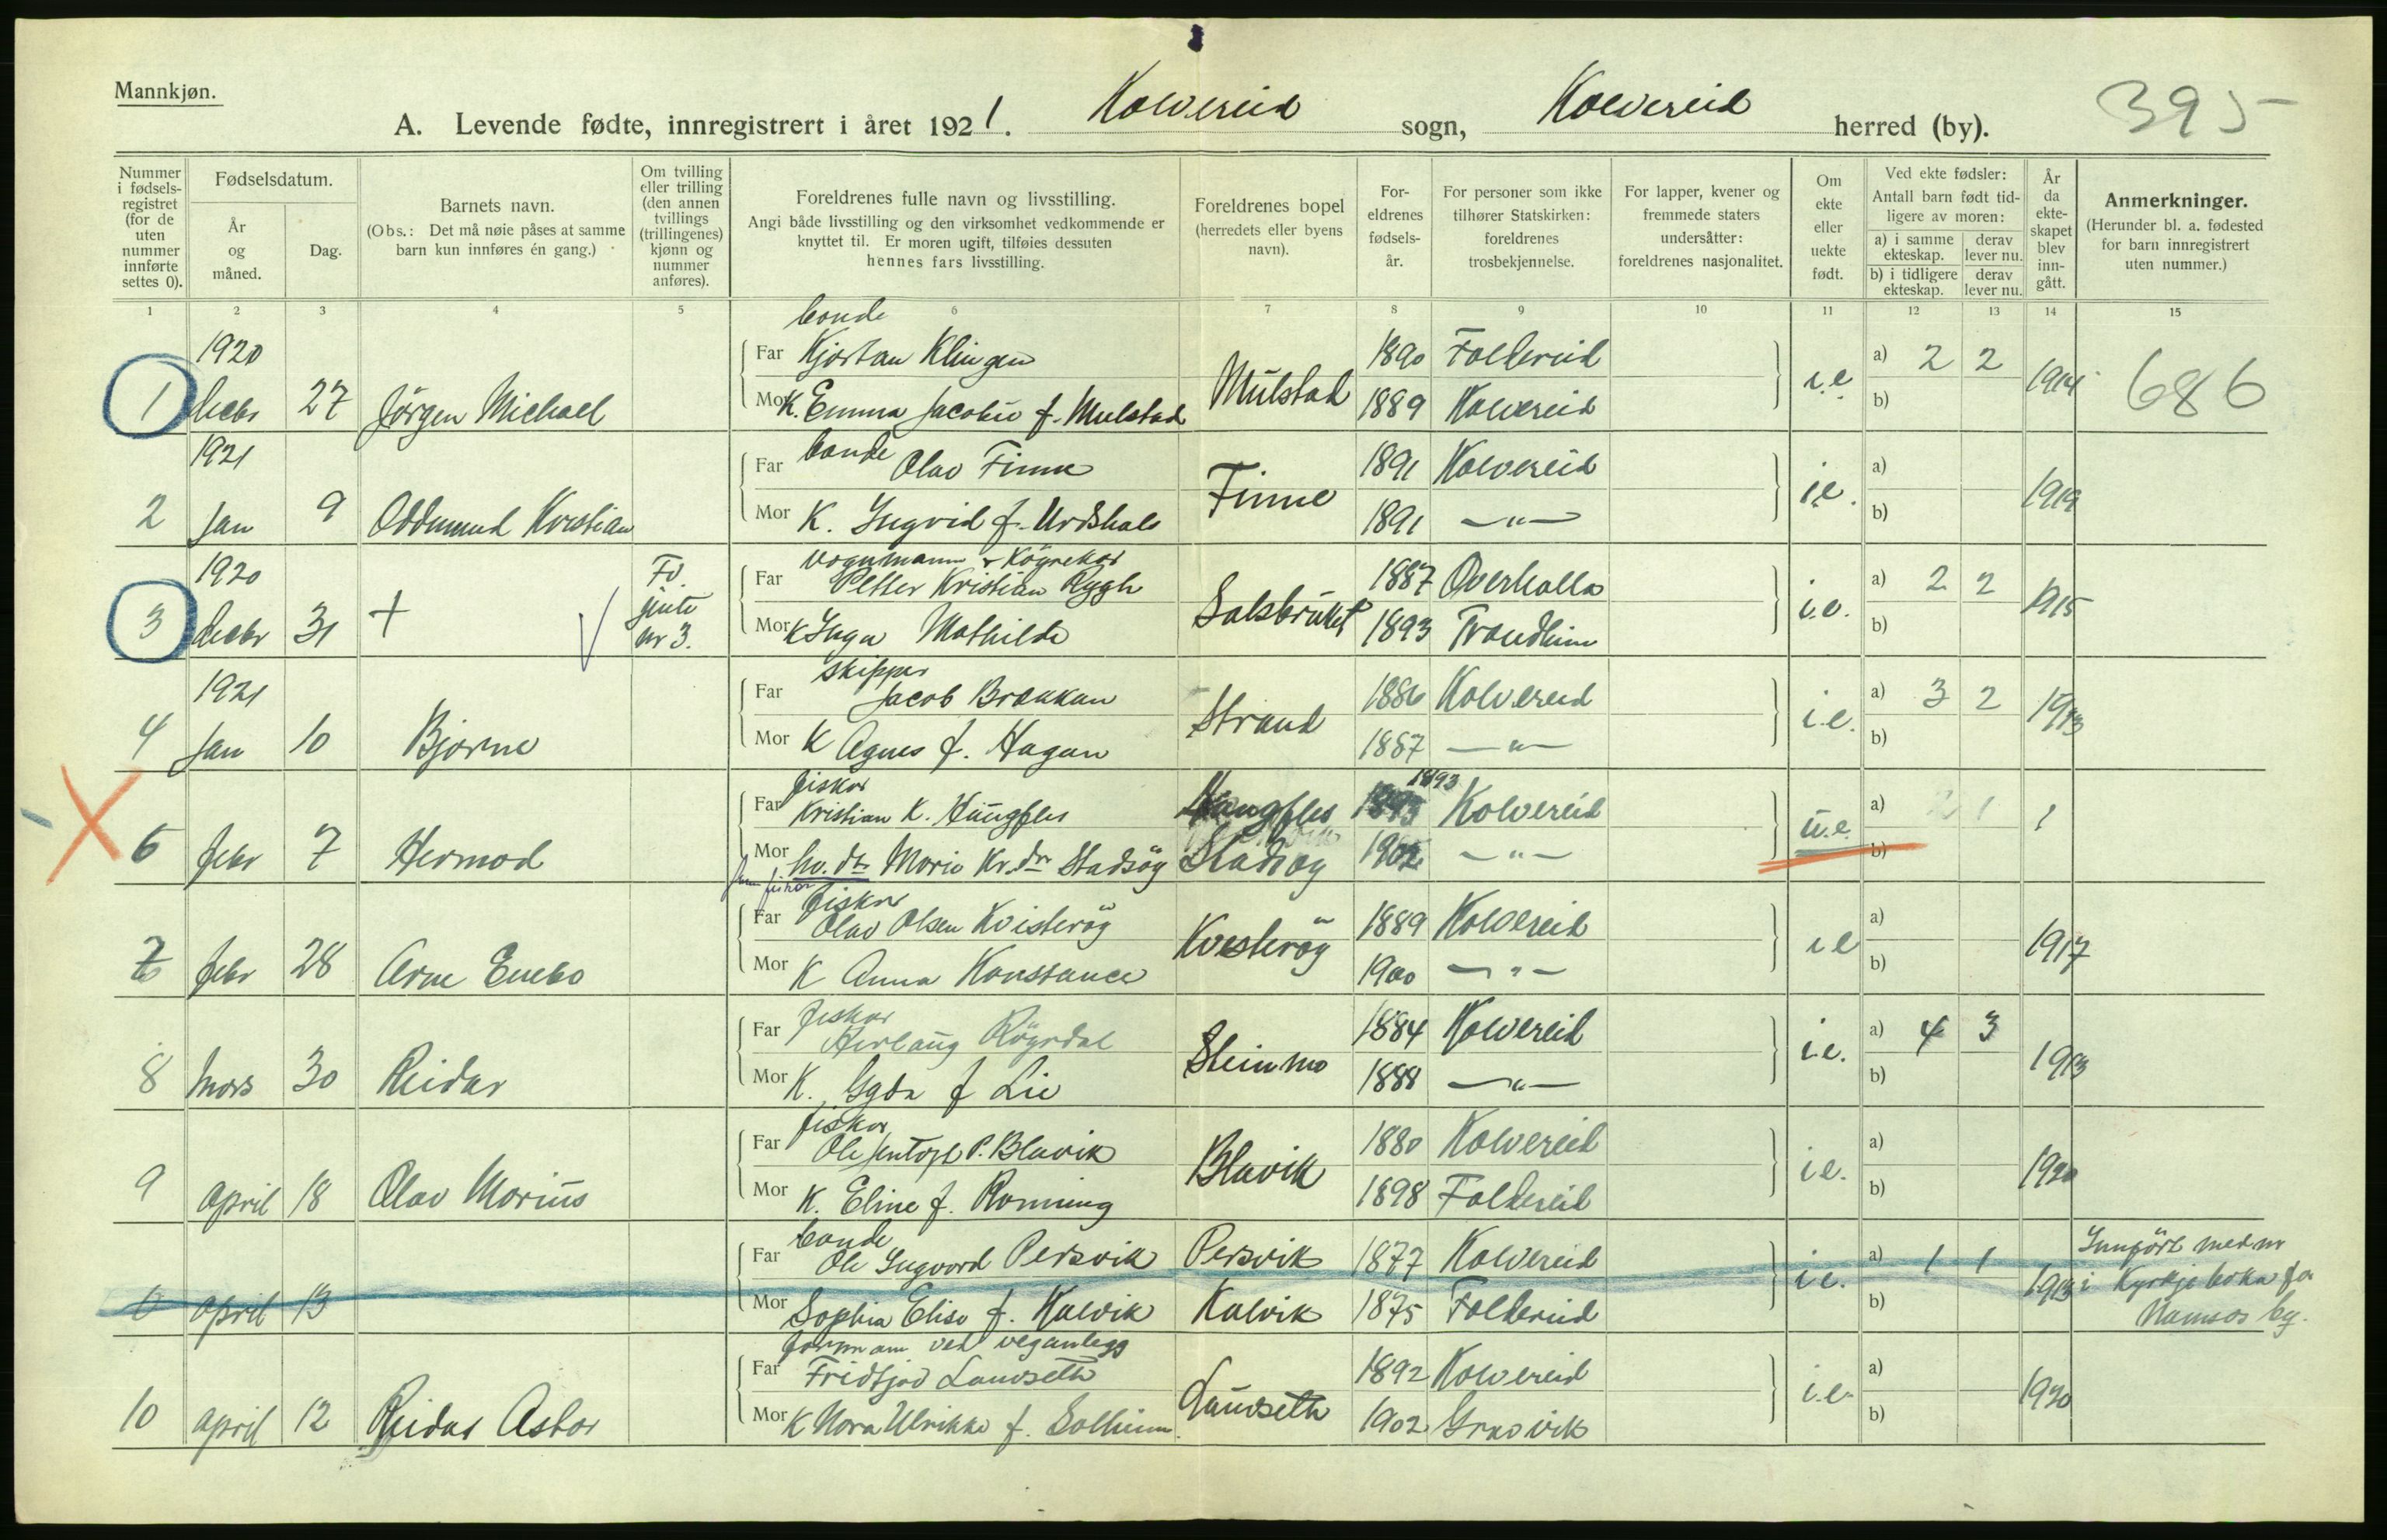 Mannkjøn.
A. Levende fødte, innregistrert i året 1921. Kolvereid sogn, Kolvereid herred (by). 395
Nummer i fødselsregistret (for de uten nummer innførte settes 0).
Fødselsdatum.
År og måned.
Dag.
Barnets navn.
(Obs.: Det må nøie påses at samme barn kun innføres én gang.)
Om tvilling eller trilling (den annen tvillings (trillingenes) kjønn og nummer anføres).
Foreldrenes fulle navn og livsstilling.
Angi både livsstilling og den virksomhet vedkommende er knyttet til. Er moren ugift, tilføies dessuten hennes fars livsstilling.
Foreldrenes bopel (herredets eller byens navn).
Foreldrenes fødselsår.
For personer som ikke tilhører Statskirken: foreldrenes trosbekjennelse.
For lapper, kvener og fremmede staters undersåtter: foreldrenes nasjonalitet.
Om ekte eller uekte født.
Ved ekte fødsler: Antall barn født tidligere av moren:
a) i samme ekteskap. derav lever nu.
b) i tidligere ekteskap. derav lever nu.
År da ekteskapet blev inngått.
Anmerkninger.
(Herunder bl. a. fødested for barn innregistrert uten nummer.)
1 2 3 4 5 6 7 8 9 10 11 12 13 14 15
bonde
1920 Far Kjartan Klingen 1890 Foldereid a) 2 2
1 Decbr 27 Jörgen Michael Mor K. Emma Jacobie f. Mulstad Mulstad 1889 Kolvereid i.e. b) 1914 686
1921 Far bonde Olav Finne 1891 Kolvereid a)
2 Jan 9 Oddmund Kristian Mor K. Ingrid f. Urdshals Finne 1891 —"— i.e. b) 1919
1920 Tv. Far Vognmann Petter Kristian Rygh 1887 Overhalla a) 2 2
3 Decbr 31 + jente nr 3. Mor K Inga Mathilde Salsbruket 1893 Trondheim i.e. b) 1915
skipper
1921 Far Jacob Brækkan 1886 Kolvereid a) 3 2
4 Jan 10 Bjarne Mor K Agnes f. Hagan Strand 1887 —"— i.e. b) 1913
fisker 1893
Far Kristian K. Haugfles Haugfles 1893 Kolvereid a)
6 febr 7 Hermod Mor Marie Kr.dtr Stadsöy Stadsöy 1902 —"— u.e. b)
fisker
Far Olav Olsen Kvisteröy 1889 Kolvereid a)
7 febr 28 Arne Enebo Mor K Anna Konstance Kvisteröy 1900 —"— i.e b) 1917
fisker
Far Herlaug Röyrdal 1884 Kolvereid a) 4 3
8 Mars 30 Reidar Mor K. Gyda f Lie Steinmo 1888 —"— i.e. b) 1913
fisker
Far Ole P. Blavik 1880 Kolvereid a)
9 april 18 Olav Marius Mor K. Eline f. Rønning Blavik 1898 Foldereid i.e. b) 1920
bonde
Far Ole Ingvard Persvik Persvik 1877 Kolvereid a) 1 1 Innfört med nr
0 april 13 Mor Sophia Elise f. Kalvik Kalvik 1875 Foldereid i.e. b) 1913 i Kyrkjeboka for
Namsos by.
formann ved veganlegg
Far Fridtjov Lauvseth 1892 Kolvereid a)
10 april 12 Reidar Asbor Mor K Nora Ulrikke f. Solheim. Lauvseth 1902 Gravvik i.e. b) 1920